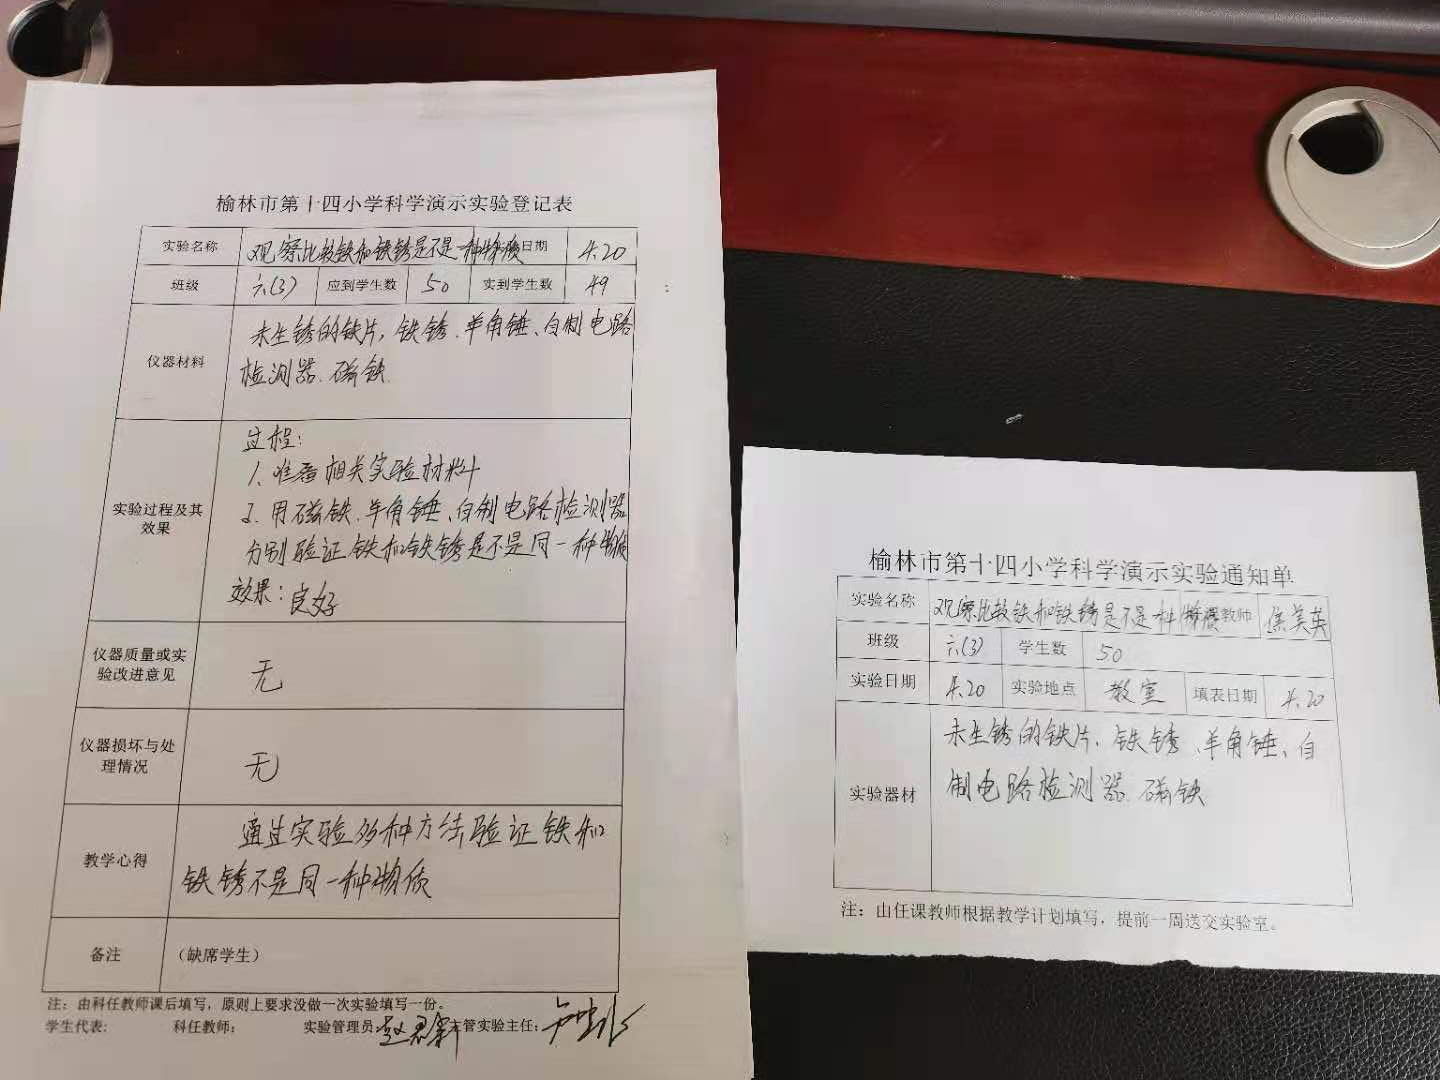 榆林市第十四小学科学演示实验登记表
实验名称 观察比较铁和铁锈是不是一种物质 日期 4.20
班级 六(3) 应到学生数 50 实到学生数 49
仪器材料
未生锈的铁片，铁锈、羊角锤、自制电路
检测器、磁铁
实验过程及其
效果
过程：
1、准备相关实验材料
2、用磁铁、羊角锤、自制电路检测器
分别验证铁和铁锈是不是同一种物质
效果：良好
仪器质量或实
验改进意见
无
仪器损坏与处
理情况
无
教学心得
通过实验多种方法验证铁和
铁锈不是同一种物质
备注 （缺席学生）
注：由科任教师课后填写，原则上要求没做一次实验填写一份。
学生代表: 科任教师: 实验管理员: 主管实验主任:
榆林市第十四小学科学演示实验通知单
实验名称 观察比较铁和铁锈是不是一种物质 教师 焦美英
班级 六(3) 学生数 50
实验日期 4.20 实验地点 教室 填表日期 4.20
实验器材
未生锈的铁片、铁锈、羊角锤、自
制电路检测器、磁铁
注：由任课教师根据教学计划填写，提前一周送交实验室。